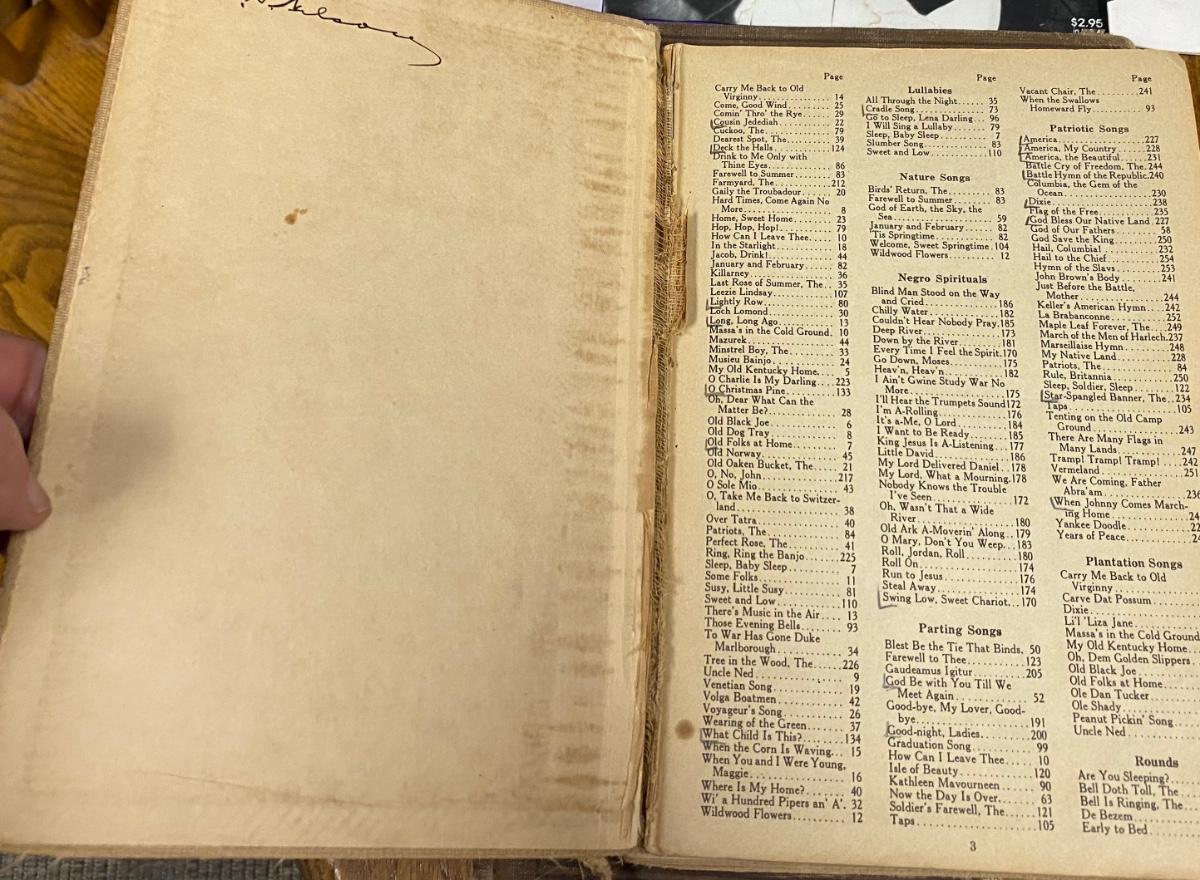 Nelson
$2.95
Page
Carry Me Back to Old
Virginny 14
Come, Good Wind 25
Comin' Thro' the Rye 29
Cousin Jedediah 22
Cuckoo, The 79
Dearest Spot, The 39
Deck the Halls 124
Drink to Me Only with
Thine Eyes 86
Farewell to Summer 83
Farmyard, The 212
Gaily the Troubadour 20
Hard Times, Come Again No
More 8
Home, Sweet Home 23
Hop, Hop, Hop! 79
How Can I Leave Thee 10
In the Starlight 18
Jacob, Drink! 44
January and February 82
Killarney 36
Last Rose of Summer, The 35
Leezie Lindsay 107
Lightly Row 80
Loch Lomond 30
Long, Long Ago 13
Massa's in the Cold Ground 10
Mazurek 44
Minstrel Boy, The 33
Musieu Bainjo 24
My Old Kentucky Home 5
O Charlie Is My Darling 223
O Christmas Pine 133
Oh, Dear What Can the
Matter Be? 28
Old Black Joe 6
Old Dog Tray 8
Old Folks at Home 7
Old Norway 45
Old Oaken Bucket, The 21
O, No, John 217
O Sole Mio 43
O, Take Me Back to Switzer-
land 38
Over Tatra 40
Patriots, The 84
Perfect Rose, The 41
Ring, Ring the Banjo 225
Sleep, Baby Sleep 7
Some Folks 11
Susy, Little Susy 81
Sweet and Low 110
There's Music in the Air 13
Those Evening Bells 93
To War Has Gone Duke
Marlborough 34
Tree in the Wood, The 226
Uncle Ned 9
Venetian Song 19
Volga Boatmen 42
Voyageur's Song 26
Wearing of the Green 37
What Child Is This? 134
When the Corn Is Waving 15
When You and I Were Young,
Maggie 16
Where Is My Home? 40
Wi' a Hundred Pipers an' A'. 32
Wildwood Flowers 12
Page
Lullabies
All Through the Night 35
Cradle Song 73
Go to Sleep, Lena Darling 96
I Will Sing a Lullaby 79
Sleep, Baby Sleep 7
Slumber Song 83
Sweet and Low 110
Nature Songs
Birds' Return, The 83
Farewell to Summer 83
God of Earth, the Sky, the
Sea 59
January and February 82
'Tis Springtime 82
Welcome, Sweet Springtime 104
Wildwood Flowers 12
Negro Spirituals
Blind Man Stood on the Way
and Cried 186
Chilly Water 182
Couldn't Hear Nobody Pray 185
Deep River 173
Down by the River 181
Every Time I Feel the Spirit 170
Go Down, Moses 175
Heav'n, Heav'n 182
I Ain't Gwine Study War No
More 175
I'll Hear the Trumpets Sound 172
I'm A-Rolling 176
It's a-Me, O Lord 184
I Want to Be Ready 185
King Jesus Is A-Listening 177
Little David 186
My Lord Delivered Daniel 178
My Lord, What a Mourning 178
Nobody Knows the Trouble
I've Seen 172
Oh, Wasn't That a Wide
River 180
Old Ark A-Moverin' Along 179
O Mary, Don't You Weep 183
Roll, Jordan, Roll 180
Roll On 174
Run to Jesus 176
Steal Away 174
Swing Low, Sweet Chariot 170
Parting Songs
Blest Be the Tie That Binds, 50
Farewell to Thee 123
Gaudeamus Igitur 205
God Be with You Till We
Meet Again 52
Good-bye, My Lover, Good-
bye 191
Good-night, Ladies 200
Graduation Song 99
How Can I Leave Thee 10
Isle of Beauty 120
Kathleen Mavourneen 90
Now the Day Is Over 63
Soldier's Farewell, The 121
Taps 105
Page
Vacant Chair, The 241
When the Swallows
Homeward Fly 93
Patriotic Songs
America 227
America, My Country 228
America, the Beautiful 231
Battle Cry of Freedom, The 244
Battle Hymn of the Republic 240
Columbia, the Gem of the
Ocean 230
Dixie 238
Flag of the Free 235
God Bless Our Native Land 227
God of Our Fathers 58
God Save the King 250
Hail, Columbia! 232
Hail to the Chief 254
Hymn of the Slavs 253
John Brown's Body 241
Just Before the Battle,
Mother 244
Keller's American Hymn 242
La Brabanconne 252
Maple Leaf Forever, The 249
March of the Men of Harlech 237
Marseillaise Hymn 248
My Native Land 228
Patriots, The 84
Rule, Britannia 250
Sleep, Soldier, Sleep 122
Star-Spangled Banner, The 234
Taps 105
Tenting on the Old Camp
Ground 243
There Are Many Flags in
Many Lands 247
Tramp! Tramp! Tramp! 242
Vermeland 251
We Are Coming, Father
Abra'am 236
When Johnny Comes March-
ing Home 24
Yankee Doodle 22
Years of Peace 24
Plantation Songs
Carry Me Back to Old
Virginny
Carve Dat Possum
Dixie
Li'l 'Liza Jane
Massa's in the Cold Ground
My Old Kentucky Home
Oh, Dem Golden Slippers
Old Black Joe
Old Folks at Home
Ole Dan Tucker
Ole Shady
Peanut Pickin' Song
Uncle Ned
Rounds
Are You Sleeping?
Bell Doth Toll, The
Bell Is Ringing, The
De Bezem
Early to Bed
3